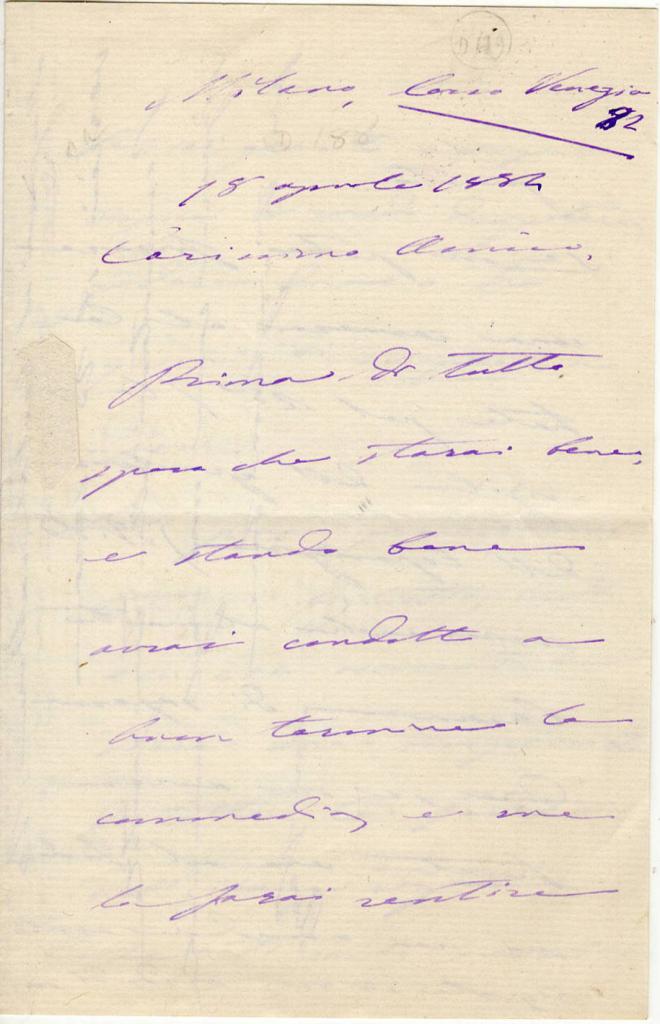 Milano, Corso Venezia
82
18 aprile 1884
Carissimo Amico,
Prima di tutto
spero che starai bene,
e stando bene
avrai condotto a
buon termine la
commedia, e me
la farai sentire